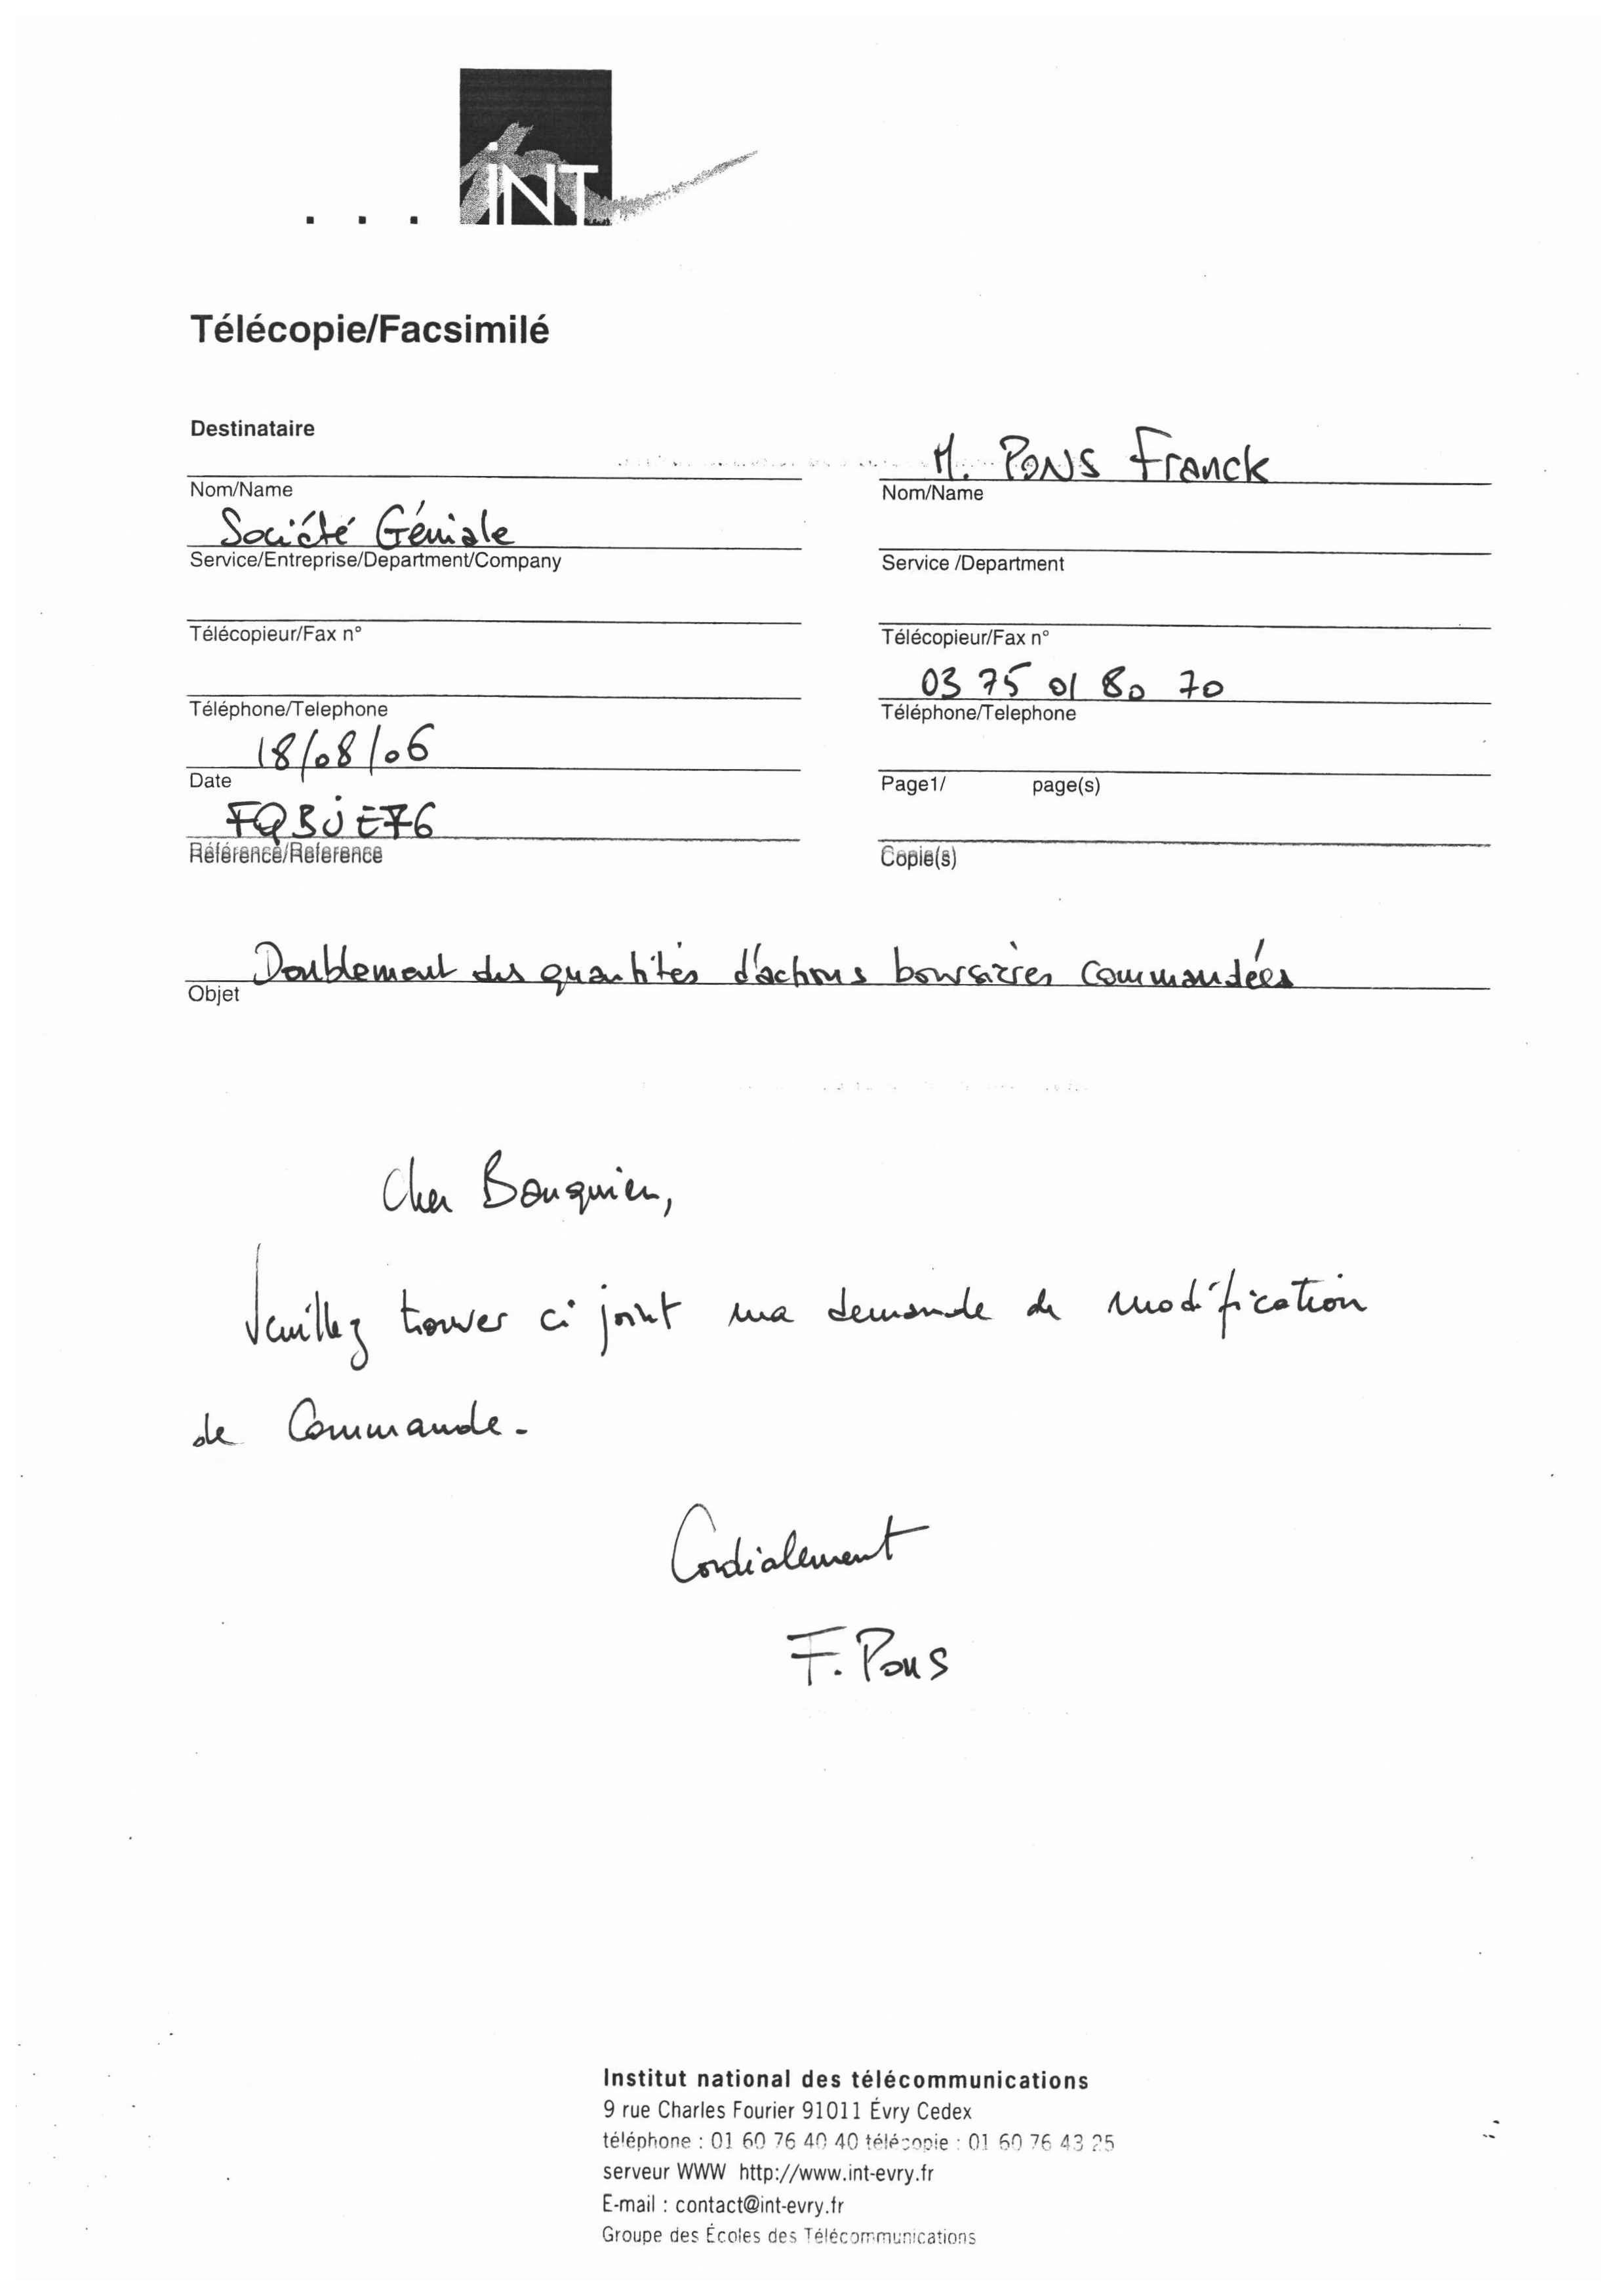 ... iNT
Télécopie/Facsimilé
Destinataire
Nom/Name
Société Géniale
Service/Entreprise/Department/Company
Télécopieur/Fax n°
Téléphone/Telephone
18/08/06
Date
FQBJE76
Référence/Reference
M. PONS Franck
Nom/Name
Service /Department
Télécopieur/Fax n°
03 75 01 80 70
Téléphone/Telephone
Page1/ page(s)
Copie(s)
Doublement des quantités d'actions boursières commandées
Objet
Cher Banquier,
Veuillez trouver ci joint ma demande de modification
de Commande.
Cordialement
F. Pons
Institut national des télécommunications
9 rue Charles Fourier 91011 Évry Cedex
téléphone : 01 60 76 40 40 télécopie : 01 60 76 43 25
serveur WWW http://www.int-evry.fr
E-mail : contact@int-evry.fr
Groupe des Écoles des Télécommunications